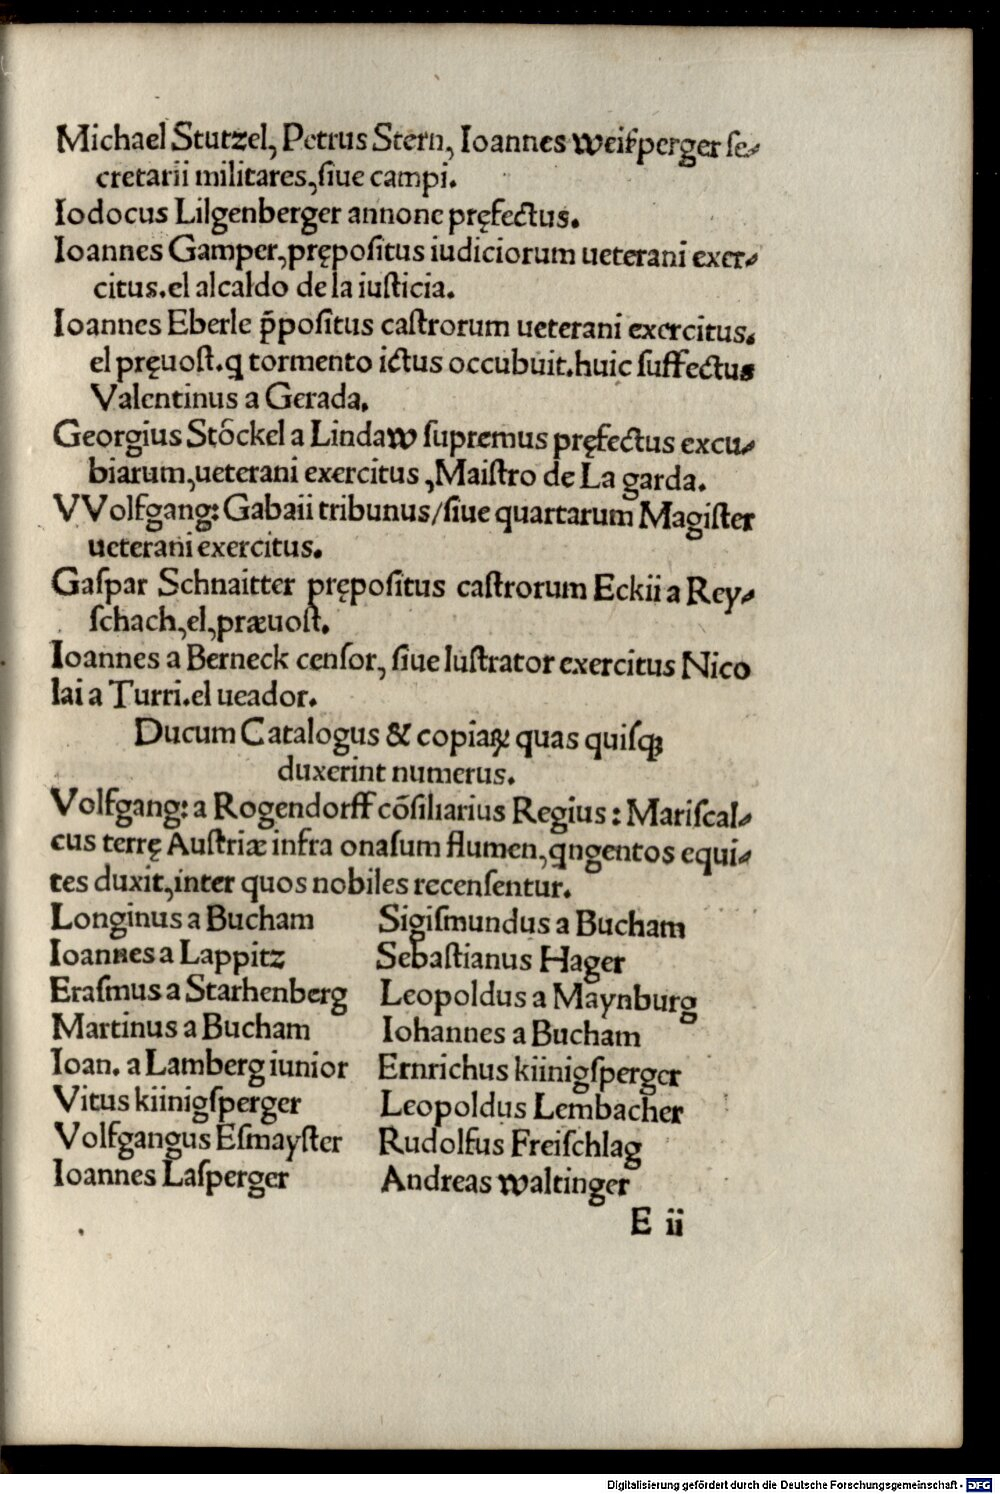 Michael Stutzel, Petrus Stern, Ioannes weiſperger ſe⸗
cretarii militares, ſiue campi.
Iodocus Lilgenberger annone pręfectus.
Ioannes Gamper, prępoſitus iudiciorum ueterani exer⸗
citus. el alcaldo de la iuſticia.
Ioannes Eberle p̄poſitus caſtrorum ueterani exercitus.
el pręuoſt. ꝗ tormento ictus occubuit. huic ſuffectus
Valentinus a Gerada.
Georgius Stöckel a Lindaw ſupremus pręfectus excu⸗
biarum, ueterani exercitus, Maiſtro de La garda.
VVolfgang: Gabaii tribunus/ſiue quartarum Magiſter
ueterani exercitus.
Gaſpar Schnaitter prępoſitus caſtrorum Eckii a Rey⸗
ſchach, el, præuoſt.
Ioannes a Berneck cenſor, ſiue luſtrator exercitus Nico
lai a Turri. el ueador.
Ducum Catalogus & copiaꝝ quas quiſꝙ
duxerint numerus.
Volfgang: a Rogendorff cōſiliarius Regius: Mariſcal⸗
cus terrę Auſtriæ infra onaſum flumen, ꝗngentos equi⸗
tes duxit, inter quos nobiles recenſentur.
Longinus a Bucham Sigiſmundus a Bucham
Ioannes a Lappitz Sebaſtianus Hager
Eraſmus a Starhenberg Leopoldus a Maynburg
Martinus a Bucham Iohannes a Bucham
Ioan. a Lamberg iunior Ernrichus kiinigſperger
Vitus kiinigſperger Leopoldus Lembacher
Volfgangus Eſmayſter Rudolfus Freiſchlag
Ioannes Laſperger Andreas waltinger
E ii
Digitalisierung gefördert durch die Deutsche Forschungsgemeinschaft - DFG